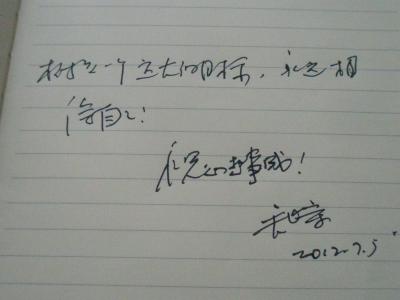 树立一个远大的目标，永远相
信自己！
祝心想事成！
2012.7.5